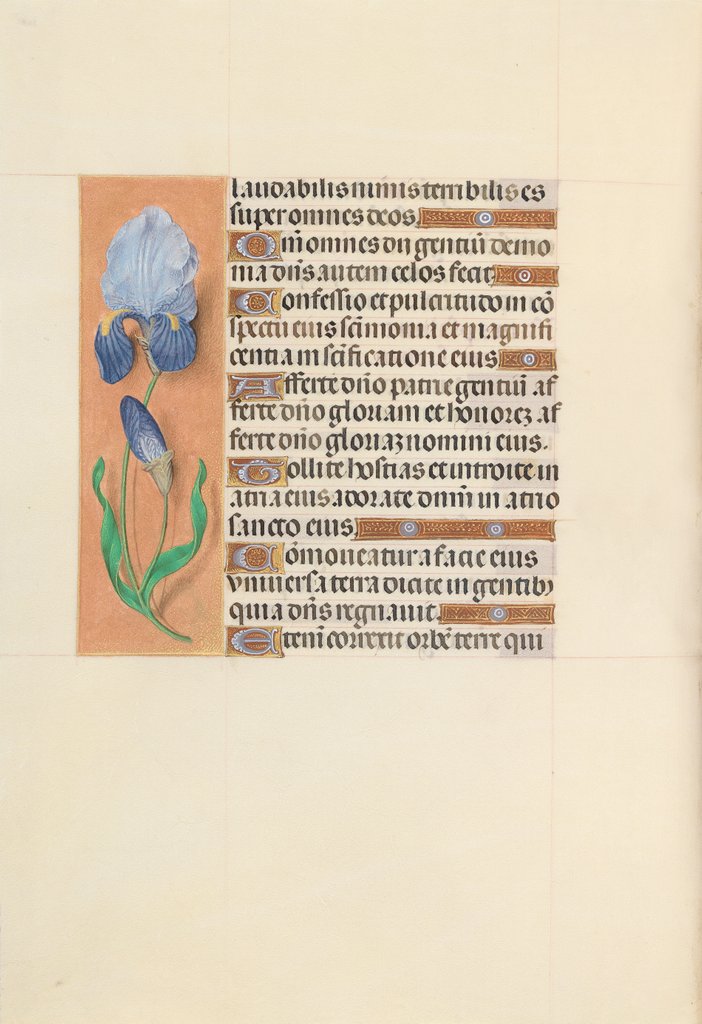 laudabilis nimis terribilis es
super omnes deos.
Qm̄ omnes dii gentiū demo
nia dn̄s autem celos fecit.
Confessio et pulcritudo in cō
spectu eius sc̄imonia et magnifi
centia in sc̄ificatione eius
Afferte dn̄o patrie gentiū af
ferte dn̄o gloriam et honorez af
ferte dn̄o gloriaz nomini eius.
Tollite hostias et introite in
atria eius adorate dominū in atrio
sancto eius
Cōmoueatur a facie eius
vniuersa terra dicite in gentibꝰ
quia dn̄s regnauit.
Etenī correxit orbē terre qui